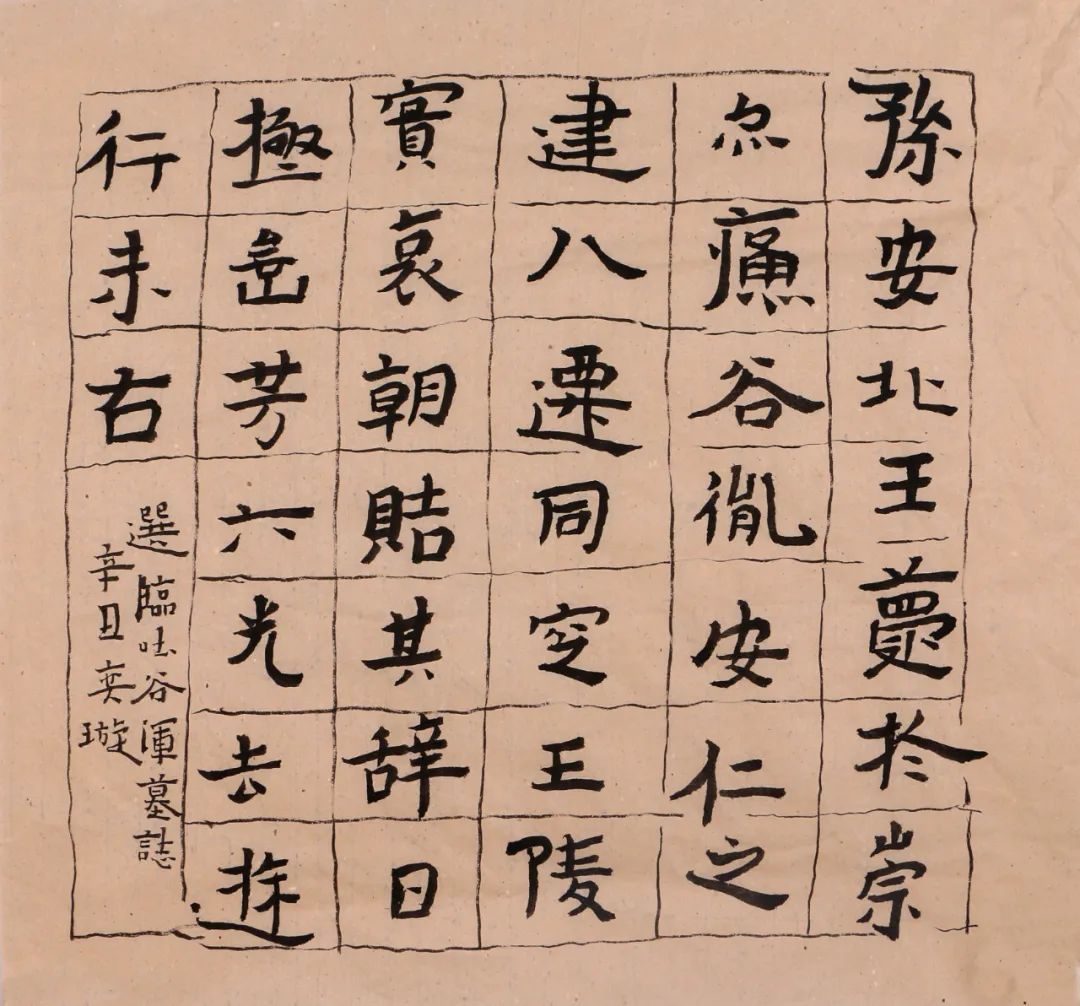 孫安北王薨於崇
尒痛谷胤安仁之
建八遷同空王陵
實哀朝其辭曰
極芳六光去遊
行未右
選臨吐谷渾墓誌
辛丑奕璇